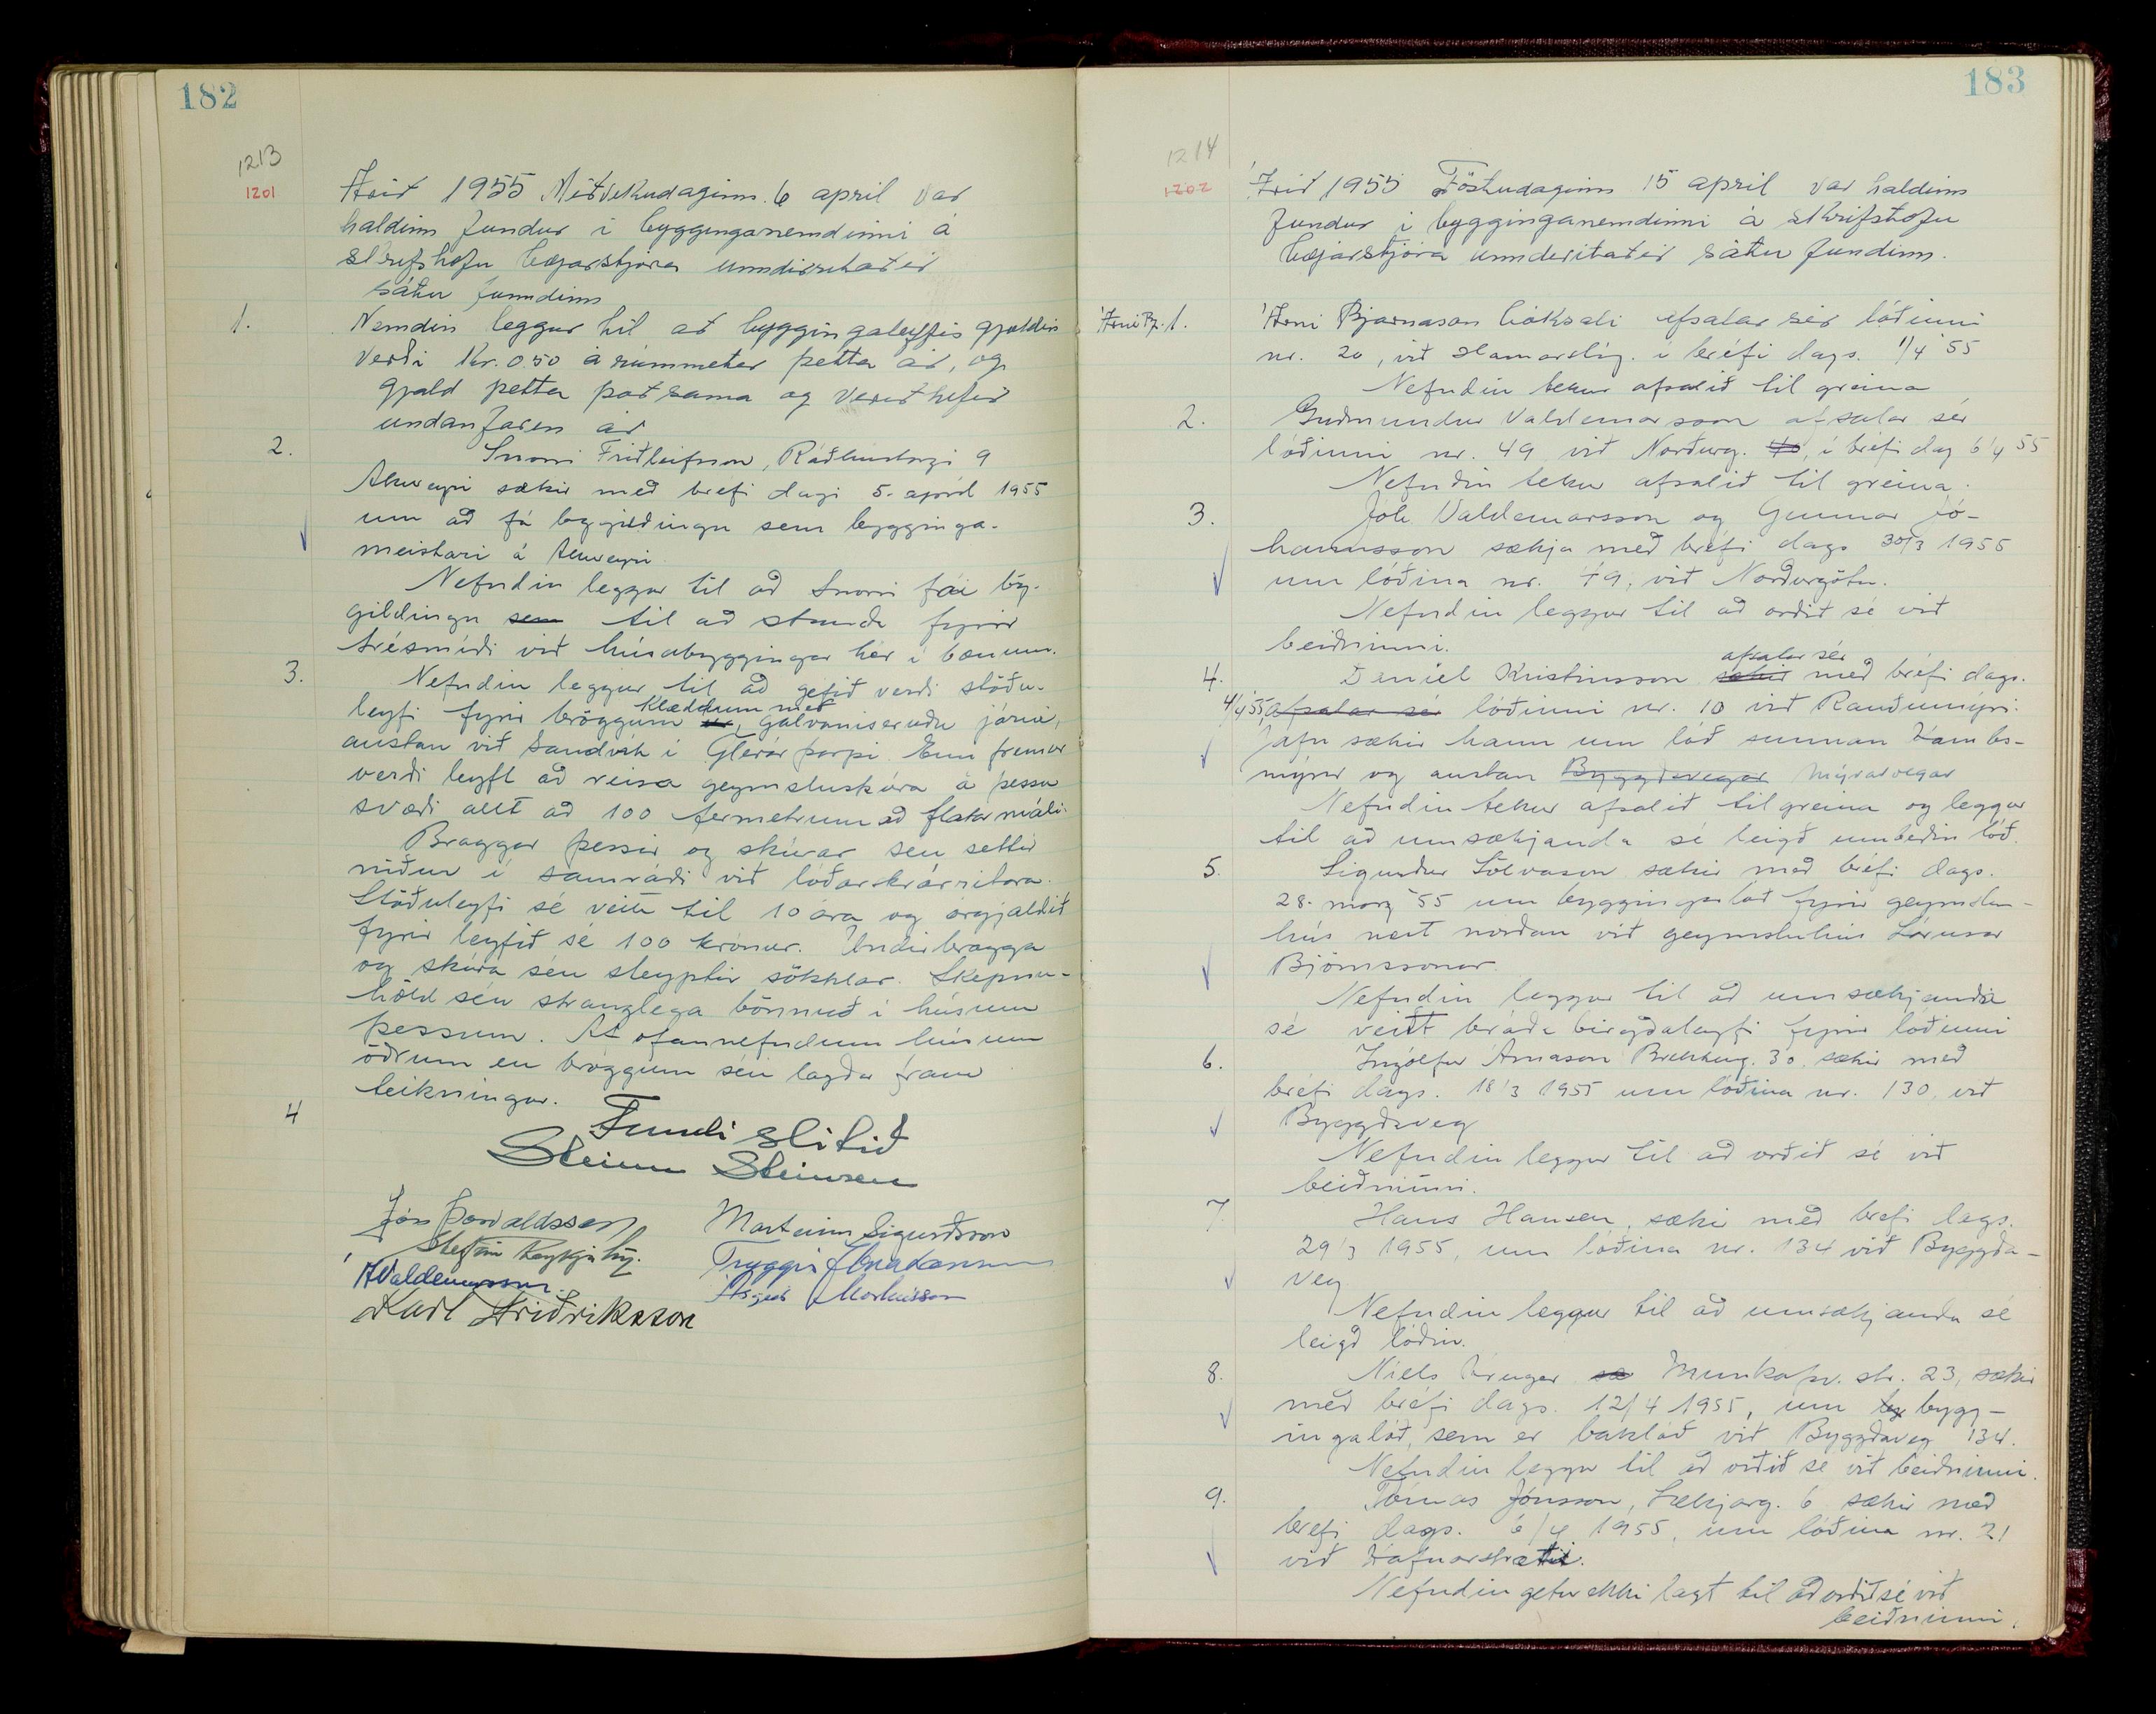 182
1213
1201
Árið 1955 Miðvikudaginn 6 april var
haldinn fundur i bygginganemdinni á
skrifstofu bæjarstjóra unndirritaðir
sátu funndinn
1. Nemdin leggur til að byggingaleyfis gjaldið
verði kr. 0.50 á rúmmeter þetta ár, og
gjald þetta það sama og verið hefir
undanfarin ár
2. Snorri Friðleifsson, Ráðhústorgi 9
Akureyri sækir með brefi dags 5. apríl 1955
um að fá löggildingu sem bygginga-
meistari á Akureyri.
Nefndin leggur til að Snorri fái lög-
gildingu sem til að standa fyrir
trésmíði við húsabyggingar hér í bænum.
3. Nefndin leggur til að gefið verði stöðu-
klæddum með
leyfi fyrir bröggum galvaniseruðu járni,
austan við Sandvík í Glerárþorpi. Enn fremur
verði leyft að reisa geymsluskúra á þessu
svæði allt að 100 fermetrum að flatarmáli.
Braggar þessir og skúrar séu settir
niður í samráði við lóðarskrárritara.
Stöðuleyfi sé veitt til 10 ára og árgjaldið
fyrir leyfið sé 100 krónur. Undir bragga
og skúra séu steyptir sökklar. Skepnu-
höld séu stranglega bönnuð í húsum
þessum. Að ofannefndum húsum
öðrum en bröggum séu lagðar fram
teikningar.
4 Fundi slitið
Steinn Steinsen
Jón Þorvaldsson Marteinn Sigurðsson
Stefán Reykjalín. Tryggvi
ÁValdemarsson Ásgeir Markússon
Karl Friðriksson
183
1214
1202
Árið 1955 Föstudaginn 15 april var haldinn
fundur i bygginganemdinni á skrifstofu
bæjarstjóra unnderitaðir sátu fundinn.
Árni Bj. 1. Árni Bjarnason bóksali afsalar sér lóðinni
nr. 20, við Hamarstíg. i bréfi dags. 1/4 '55
Nefndin tekur afsalið til greina
2. Guðmundur Valdemarsson afsalar sér
lóðinni nr. 49 við Norðurg. 40, í bréfi dag 6/4 55
Nefndin tekur afsalið til greina.
3. Jóh Valdemarsson og Gunnar Jó-
hannsson sækja með bréfi dags 30/3 1955
um lóðina nr. 49, við Norðurgötu.
Nefndin leggur til að orðið sé við
beiðninni.
afsalar sér
4. Daníel Kristinsson sækir með bréfi dags.
4/4 '55, afsalar sé lóðinni nr. 10 við Rauðumýri.
Jafn sækir hann um lóð sunnan Kambs-
mýrar og austan Byggðavegar Mýrarvegar
Nefndin tekur afsalið til greina og leggur
til að umsækjanda sé leigð umbeðin lóð.
5. Sigurður Sölvason sækir með bréfi dags.
28. marz '55 um byggingarlóð fyrir geymslu-
hús next norðan við geymsluhús Lárusar
Björnssonar.
Nefndin leggur til að umsækjandia
sé veitt bráða birgðaleyfi fyrir lóðinni
6. Ingólfur Árnason Brekkug. 30, sækir með
bréfi dags. 18/3 1955 um lóðina nr. 130, við
Byggðaveg
Nefndin leggur til að orðið sé við
beiðninni.
7. Hans Hansen, sækir með brefi dags.
29/3 1955, um lóðina nr. 134 við Byggða-
veg
Nefndin leggur til að umsækjanda sé
leigð lóðin.
8. Niels Kruger sæ Munkaþv. str. 23, sækir
með bréfi dags. 12/4 1955, um by bygg-
ingalóð, sem er baklóð við Byggðaveg 134.
Nefndin leggur til að orðið sé við beiðninni.
9. Tómas Jónsson, Lækjarg. 6 sækir með
brefi dags. 6/4 1955, um lóðina nr. 21
við Hafnarstræti.
Nefndin getur ekki lagt til að orðið sé við
beiðninni.